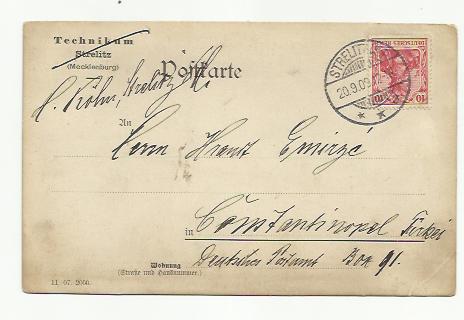 Technikum
Strelitz
(Mecklenburg)
Postkarte
STRELITZ
20.9.09
DEUTSCHES REICH
10 10
H. Fröhn, Strelitz
An
Herrn Hrant Emirzé
in Constantinopel Türkei
Deutsches Postamt Box 91.
Wohnung
(Straße und Hausnummer.)
11. 07. 2000.